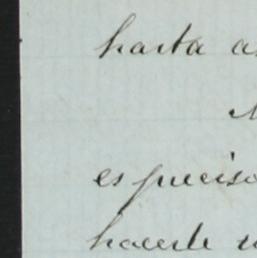 hasta
es preciso
hacerle